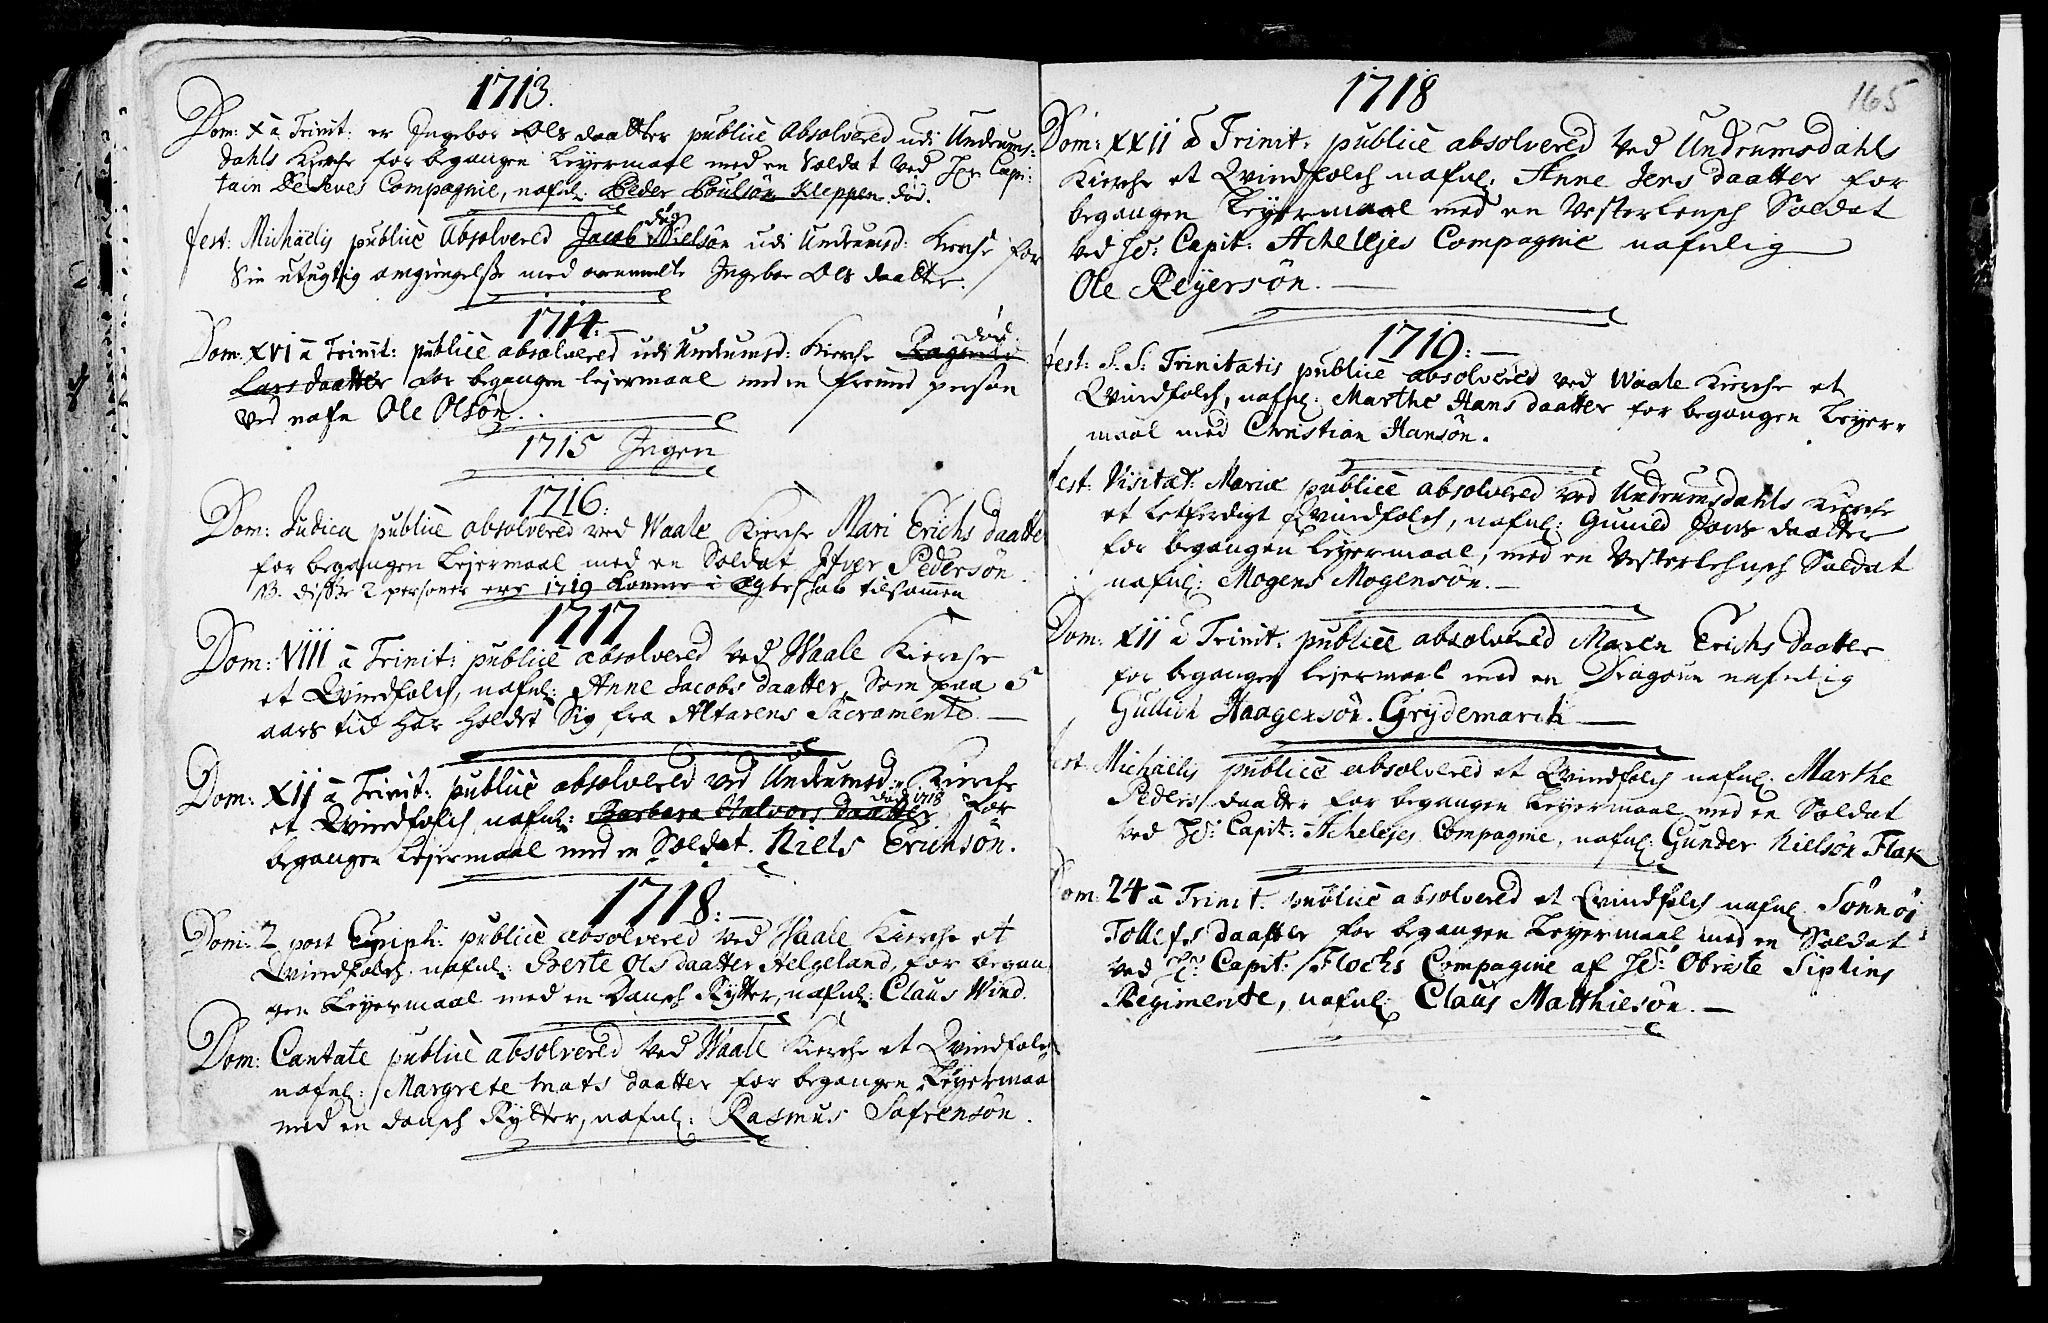 1713.
Dom: X â Trinit: er Ingebor Ols daatter publicè Absolvered udi Undrums-
dahls Kierche for begangen Leyermaal med en Soldat ved Hr: Capi:
tain Dedeves Compagnie, nafnl: Peder Poulsön Kleppen död.
fest: Michäelis publicè Absolvered Jacob Nielsön död udi Undrumsd: Kirche for
Sin utugtig omgiengelsse med ovenmelte Ingebor Ols daatter.
1714:
Dom: XVI â Trinit: publicè absolvered udi Undrumsd: Kierche Ragnild död
Lars daatter for begangen lejermaal med en fremmed person
ved nafn Ole Olsön.
1715 Ingen
1716:
Dom: Judica publicè absolvered ved Waale Kierche Mari Erichs daatter
for begangen Lejermaal med en Soldat Ifver Pedersön.
NB. disse 2 personer ere 1719 komne i Egteschab tilsammen
1717
Dom: VIII â Trinit: publicè absolvered ved Waale Kierche
et Qvindfolch, nafnl: Anne Jacobs daatter, Som paa 5
aars tid har holdet Sig fra Altarens Sacramente.
Dom: XII â Trinit: publicè absolvered ved Undrumsd: Kierche
et Qvindfolch nafnl: Barbara Halvors daatter död 1718 for
begangen Lejermaal med en Soldat. Niels Erichsön.
1718:
Dom: 2 post Epiph: publicè absolvered ved Waale Kierche et
Qvindfolch nafnl: Berte Ols daatter Helgeland, for began
gen Leyermaal med en Dansch Rytter, nafnl: Claus Wind.
Dom: Cantate publicè absolvered ved Waale Kierche et Qvindfolch
nafnl: Margrete Mats daatter for begangen Leyermaal
med en dansch Rytter, nafnl: Rasmus Safrensön.
1718
165
Dom: XXII â Trinit: publicè absolvered ved Undrumsdahls
Kierche et Qvindfolch nafnl: Anne Jens daatter for
begangen Leyermaal med en Vesterlensch Soldat
ved Hr: Capit: Achelejes Compagnie nafnlig
Ole Reyersön.
1719:
fest: S.S: Trinitatis publicè absolvered ved Waale Kierche et
Qvindfolch, nafnl: Marthe Hans daatter for begangen Leyer-
maal med Christian Hansön.
fest: Visitat: Mariæ publicè absolvered ved Undrumsdahls Kierche
et letferdigt Qvindfolch, nafnl: Gunild Jons daatter
for begangen Leyermaal, med en Vesterlehnsch Soldat
nafnl: Mogens Mogensön.
Dom: XII â Trinit: publicè absolvered Maren Erichs daatter
for begangen lejermaal med en Dragoun nafnlig
Gullich Haagensön. Grydemarch
fest: Michäelis publicè absolvered et Qvindfolch nafnl: Marthe
Peders daatter for begangen Leyermaal med en Soldat
ved Hr: Capit: Achelejes Compagnie, nafnl: Gunder Nielsön Flak
Dom: 24 â Trinit: publicè absolvered et Qvindfolch nafnl: Sönnöi
Tollefs daatter for begangen Leyermaal med en Soldat
ved Hr: Capit: Flochs Compagnie af Hr: Obriste Siplins
Regimente, nafnl: Claus Matthiesön.